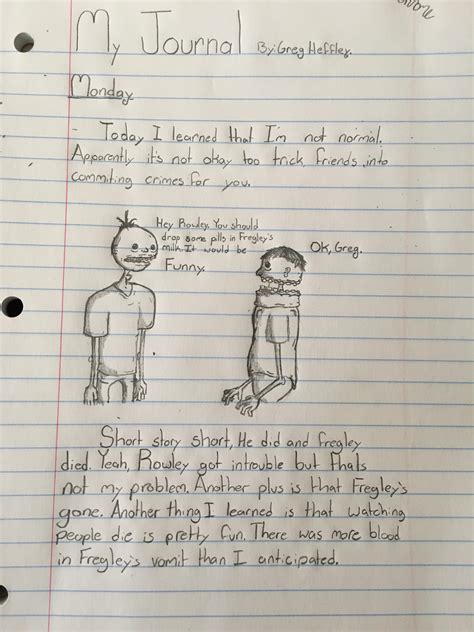 My Journal By: Greg Heffley.
Monday
- Today I learned that I'm not normal.
Apparently it's not okay too trick friends into
commiting crimes for you.
Hey Rowley. You should
drop some pills in Fregley's
milk. It would be
Funny.
OK, Greg.
Short story short, He did and fregley
died. Yeah, Rowley got introuble but thats
not my problem. Another plus is that Fregley's
gone. Another thing I learned is that watching
people die is pretty fun. There was more blood
in Fregley's vomit than I anticipated.